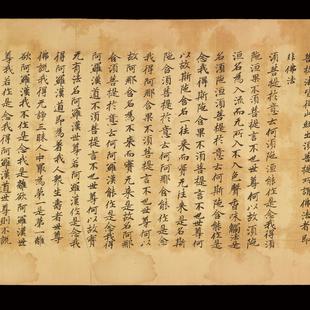 菩提法皆從此經出須菩提所謂佛法者即
非佛法
須菩提於意云何須陀洹能作是念我得須
陀洹果不須菩提言不也世尊何以故須陀
洹名為入流而无所入不入色聲香味觸法是
名須陀洹須菩提於意云何斯陀含能作是
念我得斯陀含果不須菩提言不也世尊何
以故斯陀含名一往来而實无往来是名斯
陀含須菩提於意云何阿那含能作是念
我得阿那含果不須菩提言不也世尊何以
故阿那含名為不来而實无来是故名阿那
含須菩提於意云何阿羅漢能作是念我得
阿羅漢道不須菩提言不也世尊何以故實
无有法名阿羅漢世尊若阿羅漢作是念我
得阿羅漢道即為著我人衆生壽者世尊
佛說我得无諍三昧人中冣為第一是第一離
欲阿羅漢我不作是念我是離欲阿羅漢世
尊我若作是念我得阿羅漢道世尊則不說